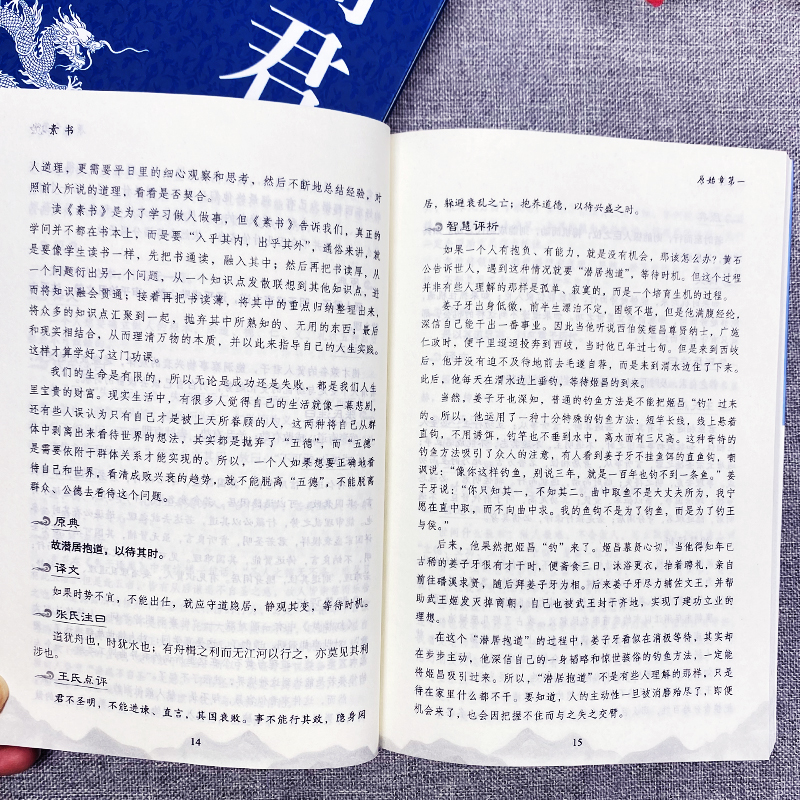 君
素书
人道理，更需要平日里的细心观察和思考，然后不断地总结经验，对
照前人所说的道理，看看是否契合。
读《素书》是为了学习做人做事，但《素书》告诉我们，真正的
学问并不都在书本上，而是要“入乎其内，出乎其外”，通俗来讲，就
是要像学生读书一样，先把书通读，融入其中；然后再把书读厚，从
一个问题衍出另一个问题，从一个知识点发散联想到其他知识点，进
而将知识融会贯通；接着再把书读薄，将其中的重点归纳整理出来，
将众多的知识点汇聚到一起，抛弃其中所熟知的、无用的东西；最后
和现实相结合，从而理清万物的本质，并以此来指导自己的人生实践。
这样才算学好了这门功课。
我们的生命是有限的，所以无论是成功还是失败，都是我们人生
里宝贵的财富。现实生活中，有很多人觉得自己的生活就像一幕悲剧，
还有些人误认为只有自己才是被上天所眷顾的人，这两种将自己从群
体中剥离出来看待世界的想法，其实都是抛弃了“五德”，而“五德”
是需要依附于群体关系才能实现的。所以，一个人如果想要正确地看
待自己和世界，看清成败兴衰的趋势，就不能脱离“五德”，不能脱离
群众、公德去看待这个问题。
原典
故潜居抱道，以待其时。
译文
如果时势不宜，不能出任，就应守道隐居，静观其变，等待时机。
张氏注曰
道犹舟也，时犹水也；有舟楫之利而无江河以行之，亦莫见其利
涉也。
王氏点评
君不圣明，不能进谏、直言，其国衰败。事不能行其政，隐身闲
14
原始章第一
居，躲避衰乱之亡；抱养道德，以待兴盛之时。
智慧评析
如果一个人有抱负、有能力，就是没有机会，那该怎么办？黄石
公告诉世人，遇到这种情况就要“潜居抱道”，等待时机。但这个过程
并非有些人理解的那样是孤单、寂寞的，而是一个培育生机的过程。
姜子牙出身低微，前半生漂泊不定，困顿不堪，但是他满腹经纶，
深信自己能干出一番事业。因此当他听说西伯侯姬昌尊贤纳士，广施
仁政时，便千里迢迢投奔到西岐，当时他已年过七旬。但是来到西岐
后，他并没有迫不及待地前去毛遂自荐，而是来到渭水边住了下来。
此后，他每天在渭水边上垂钓，等待姬昌的到来。
当然，姜子牙也深知，普通的钓鱼方法是不能把姬昌“钓”过来
的。所以，他运用了一种十分特殊的钓鱼方法：短竿长线，线上悬着
直钩，不用诱饵，钓竿也不垂到水中，离水面有三尺高。这样奇特的
钓鱼方法吸引了众人的注意，有人看到姜子牙不挂鱼饵的直鱼钩，嘲
讽说：“像你这样钓鱼，别说三年，就是一百年也钓不到一条鱼。”姜
子牙说：“你只知其一，不知其二。曲中取鱼不是大丈夫所为，我宁
愿在直中取，而不向曲中求。我的鱼钩不是为了钓鱼，而是为了钓王
与侯。”
后来，他果然把姬昌“钓”来了。姬昌慕贤心切，当他得知年已
古稀的姜子牙很有才干时，便斋食三日，沐浴更衣，抬着聘礼，亲自
前往磻溪求贤，随后拜姜子牙为相。后来姜子牙尽力辅佐文王，并帮
助武王姬发灭掉商朝，自己也被武王封于齐地，实现了建功立业的
理想。
在这个“潜居抱道”的过程中，姜子牙看似在消极等待，其实却
在步步主动，他深信自己的一身韬略和惊世骇俗的钓鱼方法，一定能
将姬昌吸引过来。所以，“潜居抱道”不是有些人理解的那样，只是
待在家里什么都不干。要知道，人的主动性一旦被消磨殆尽了，即便
机会来了，也会因把握不住而与之失之交臂。
15